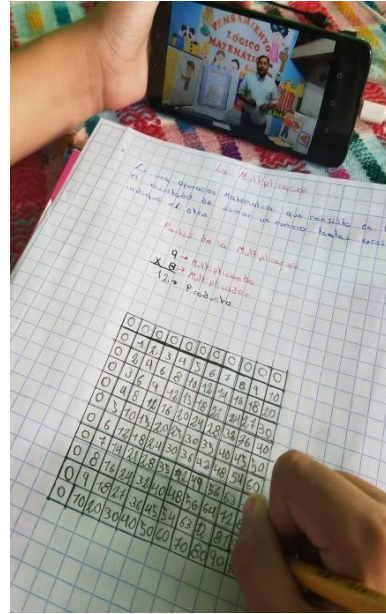 PENSAMIENTO
LÓGICO
MATEMÁTICO
La Multiplicación
Es una operación Matemática que consiste en
el resultado de sumar un número tantas veces
indique el otro.
Partes de la Multiplicación
9 → Multiplicando
x 8 → Multiplicador
72 → Producto
0 0 0 0 0 0 0 0 0 0 0
0 1 2 3 4 5 6 7 8 9 10
0 2 4 6 8 10 12 14 16 18 20
0 3 6 9 12 15 18 21 24 27 30
0 4 8 12 16 20 24 28 32 36 40
0 5 10 15 20 25 30 35 40 45 50
0 6 12 18 24 30 36 42 48 54 60
0 7 14 21 28 35 42 49 56 63
0 8 16 24 32 40 48 56 64 72
0 9 18 27 36 45 54 63 81
0 10 20 30 40 50 60 70 80 90